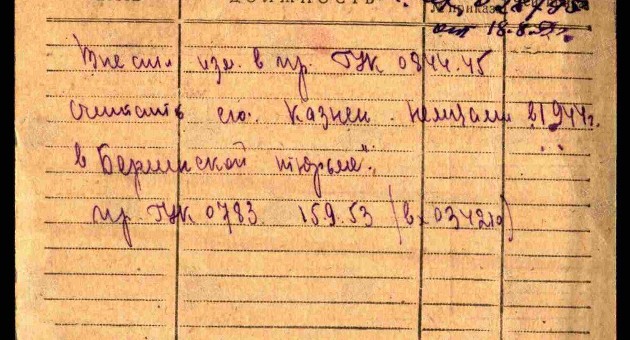 ДОЛЖНОСТЬ приказа
от 18.8.
Внести изм. в пр. ГУК 0844.45
Считать его казнен немцами в 1944г.
в Берлинской тюрьме".
пр. ГУК 0783 159.53 (вх 03421)